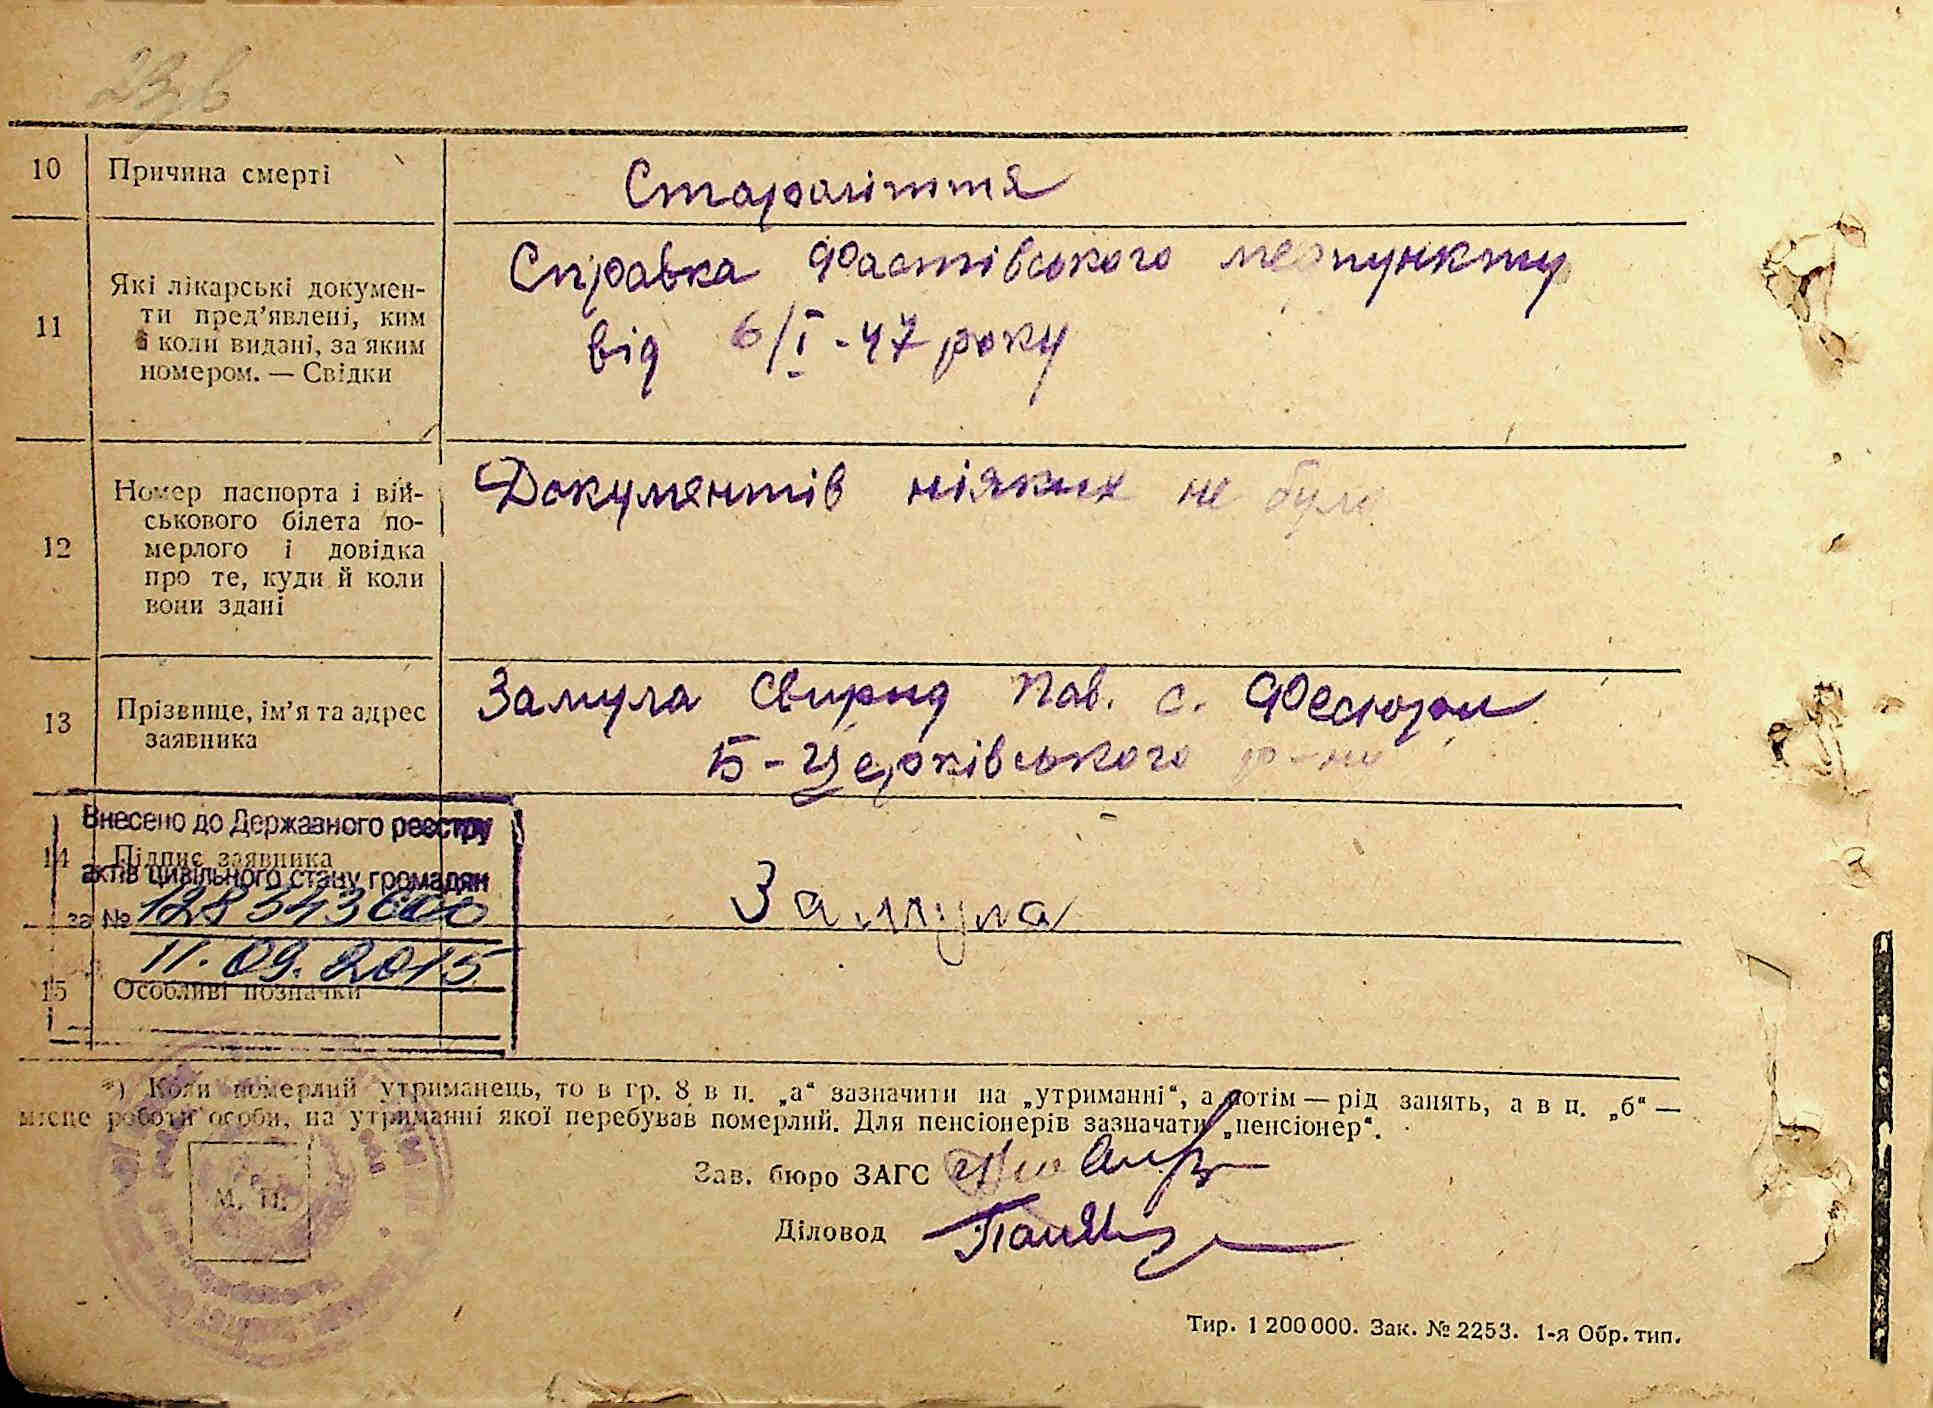 10 Причина смерті Староліття
11 Які лікарські докумен-
ти пред’явлені, ким
і коли видані, за яким
номером. — Свідки
Справка Фастівського медпункту
від 6/І - 47 року
12 Номер паспорта і вій-
ськового білета по-
мерлого і довідка
про те, куди й коли
вони здані
Документів ніяких не було
13 Прізвище, ім’я та адрес
заявника
Замула Свирид Пав. с. Фесюри
Б-Церківського р-ну
14 Підпис заявника
Замула
Внесено до Державного реєстру
актів цивільного стану громадян
за № 128343600
11.09.2015
15 Особливі позначки
*) Коли померлий утриманець, то в гр. 8 в п. „а“ зазначити на „утриманні“, а потім — рід занять, а в п. „б“ —
місце роботи особи, на утриманні якої перебував померлий. Для пенсіонерів зазначати „пенсіонер“.
Зав. бюро ЗАГС
М. П.
Діловод
Тир. 1 200 000. Зак. № 2253. 1-я Обр. тип.